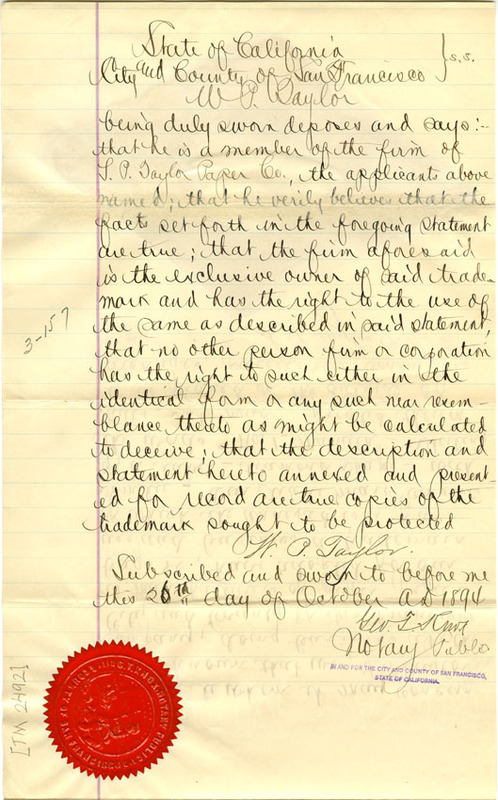 State of California
City and County of San Francisco } s.s.
W. P. Taylor
being duly sworn deposes and says:-
that he is a member of the firm of
S. P. Taylor Paper Co., the applicants above
named; that he verily believes that the
facts set forth in the foregoing statement
are true; that the firm aforesaid
is the exclusive owner of said trade-
mark and has the right to the use of
the same as described in said statement,
that no other person firm or corporation
has the right to such either in the
identical form or any such near resem-
blance thereto as might be calculated
to deceive; that the description and
statement hereto annexed and present-
ed for record are true copies of the
trademark sought to be protected
W. P. Taylor.
Subscribed and sworn to before me
this 26th day of October AD 1894
Geo. T. Knox
Notary Public
IN AND FOR THE CITY AND COUNTY OF SAN FRANCISCO,
STATE OF CALIFORNIA.
3-157
[TM 2492]